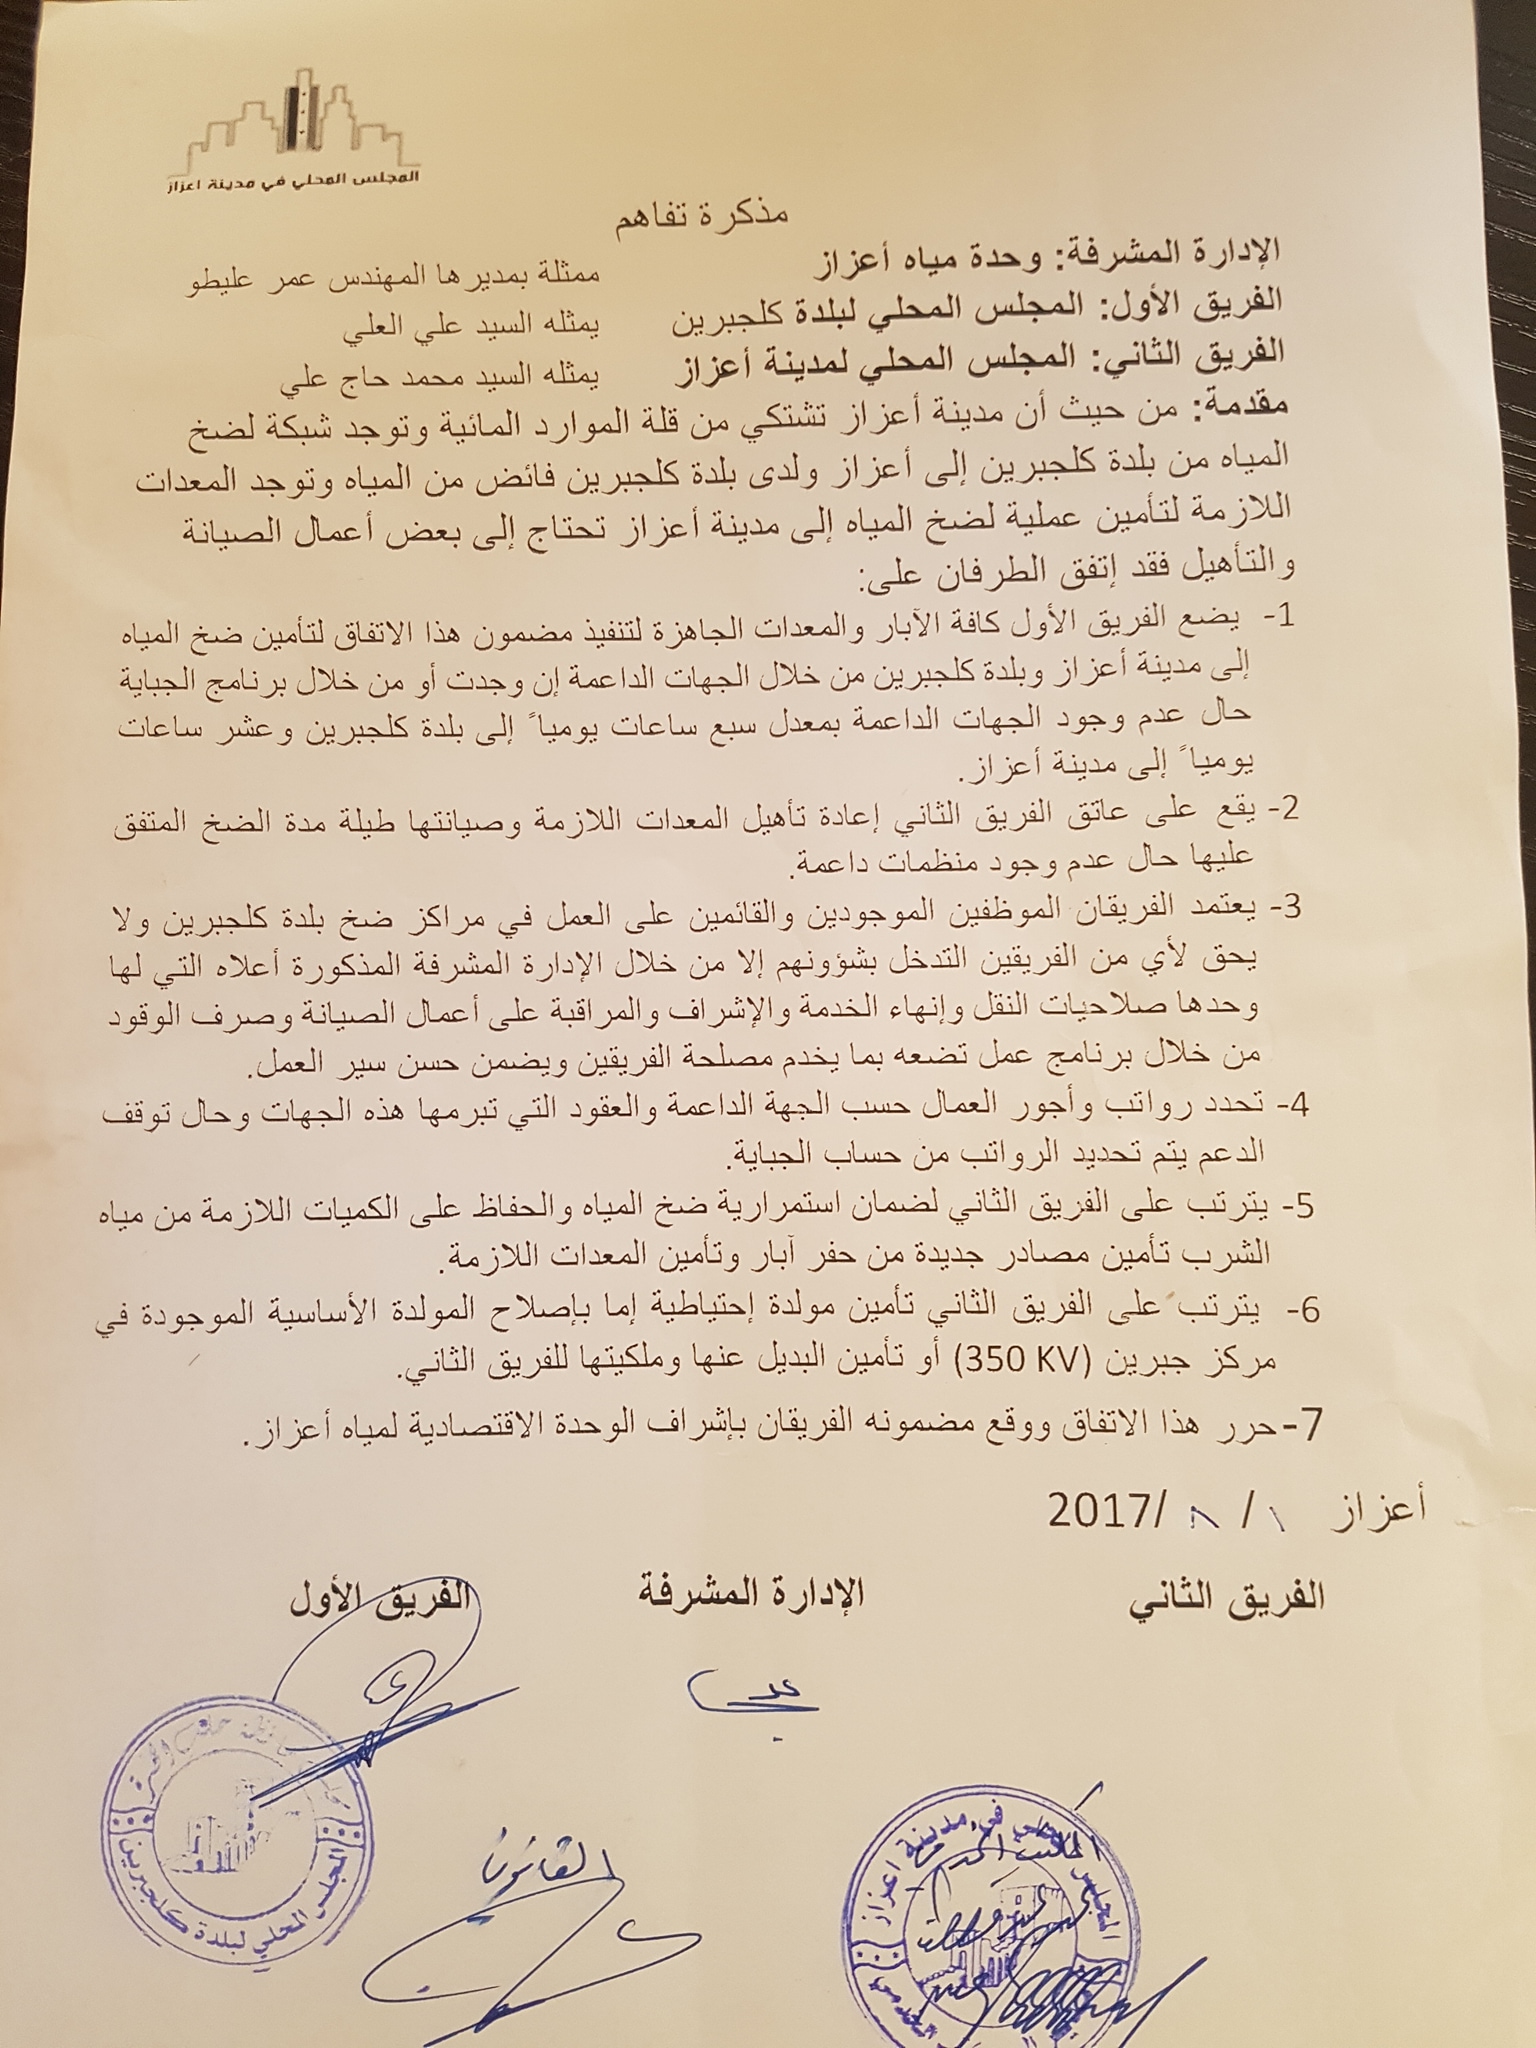 المجلس المحلي في مدينة اعزاز
مذكرة تفاهم
الإدارة المشرفة: وحدة مياه أعزاز ممثلة بمديرها المهندس عمر عليطو
الفريق الأول: المجلس المحلي لبلدة كلجبرين يمثله السيد علي العلي
الفريق الثاني: المجلس المحلي لمدينة أعزاز يمثله السيد محمد حاج علي
مقدمة: من حيث أن مدينة أعزاز تشتكي من قلة الموارد المائية وتوجد شبكة لضخ
المياه من بلدة كلجبرين إلى أعزاز ولدى بلدة كلجبرين فائض من المياه وتوجد المعدات
اللازمة لتأمين عملية لضخ المياه إلى مدينة أعزاز تحتاج إلى بعض أعمال الصيانة
والتأهيل فقد إتفق الطرفان على:
1- يضع الفريق الأول كافة الآبار والمعدات الجاهزة لتنفيذ مضمون هذا الاتفاق لتأمين ضخ المياه
إلى مدينة أعزاز وبلدة كلجبرين من خلال الجهات الداعمة إن وجدت أو من خلال برنامج الجباية
حال عدم وجود الجهات الداعمة بمعدل سبع ساعات يومياً إلى بلدة كلجبرين وعشر ساعات
يومياً إلى مدينة أعزاز.
2- يقع على عاتق الفريق الثاني إعادة تأهيل المعدات اللازمة وصيانتها طيلة مدة الضخ المتفق
عليها حال عدم وجود منظمات داعمة.
3- يعتمد الفريقان الموظفين الموجودين والقائمين على العمل في مراكز ضخ بلدة كلجبرين ولا
يحق لأي من الفريقين التدخل بشؤونهم إلا من خلال الإدارة المشرفة المذكورة أعلاه التي لها
وحدها صلاحيات النقل وإنهاء الخدمة والإشراف والمراقبة على أعمال الصيانة وصرف الوقود
من خلال برنامج عمل تضعه بما يخدم مصلحة الفريقين ويضمن حسن سير العمل.
4- تحدد رواتب وأجور العمال حسب الجهة الداعمة والعقود التي تبرمها هذه الجهات وحال توقف
الدعم يتم تحديد الرواتب من حساب الجباية.
5- يترتب على الفريق الثاني لضمان استمرارية ضخ المياه والحفاظ على الكميات اللازمة من مياه
الشرب تأمين مصادر جديدة من حفر آبار وتأمين المعدات اللازمة.
6- يترتب على الفريق الثاني تأمين مولدة إحتياطية إما بإصلاح المولدة الأساسية الموجودة في
مركز جبرين (350 KV) أو تأمين البديل عنها وملكيتها للفريق الثاني.
7- حرر هذا الاتفاق ووقع مضمونه الفريقان بإشراف الوحدة الاقتصادية لمياه أعزاز.
أعزاز ١ / ٨ /2017
الفريق الثاني الإدارة المشرفة الفريق الأول
المجلس المحلي لبلدة كلجبرين
القانوني
في مدينة اعزاز
المكتب